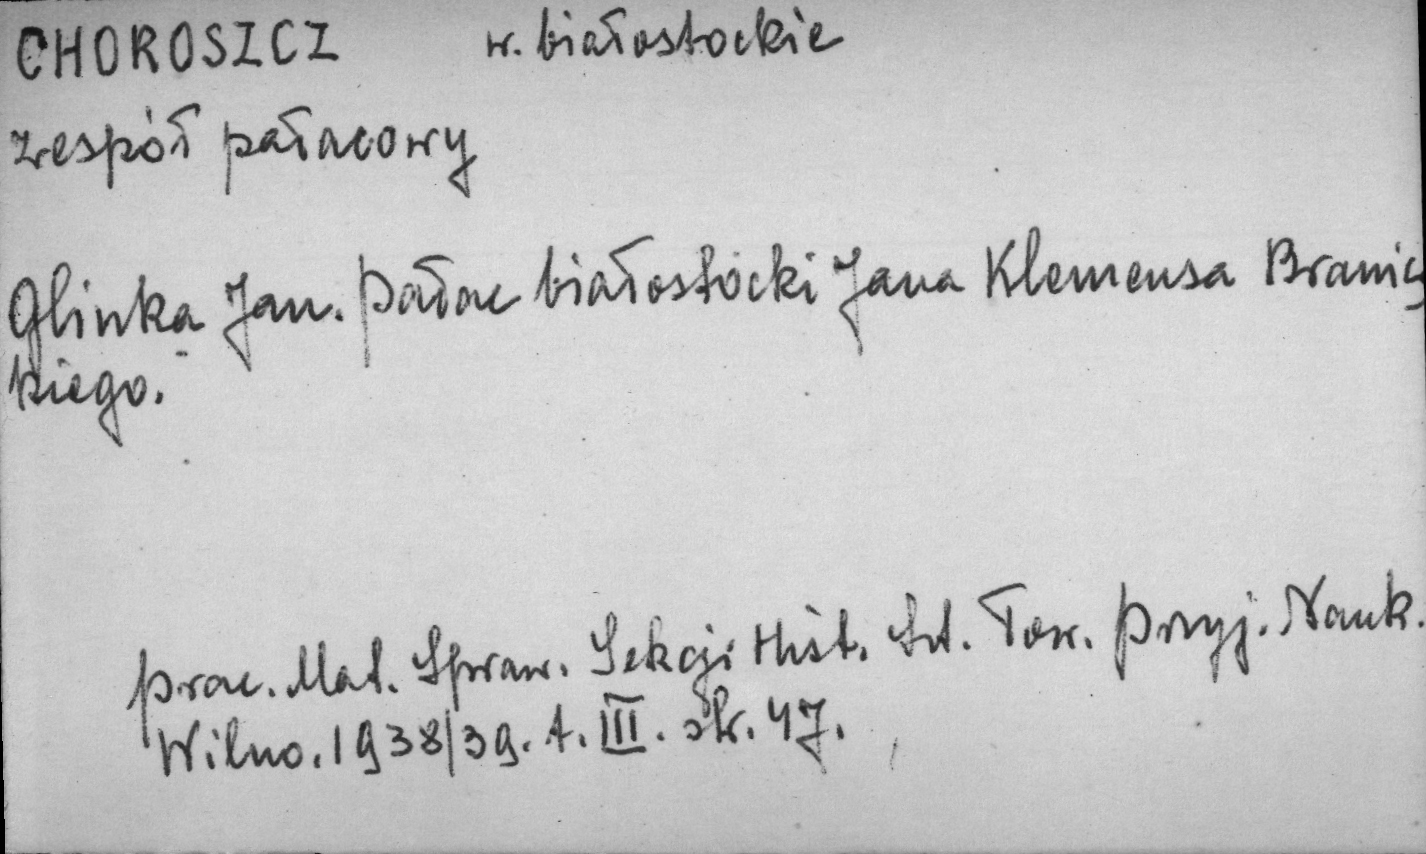 CHOROSZCZ w. białostockie
zespół pałacowy
Glinka Jan. Pałac białostocki Jana Klemensa Branic
kiego.
Prac. Mat. Spraw. Sekcji Hist. Szt. Tow. Przyj. Nauk.
Wilno. 1938/39. t. III. str. 47.